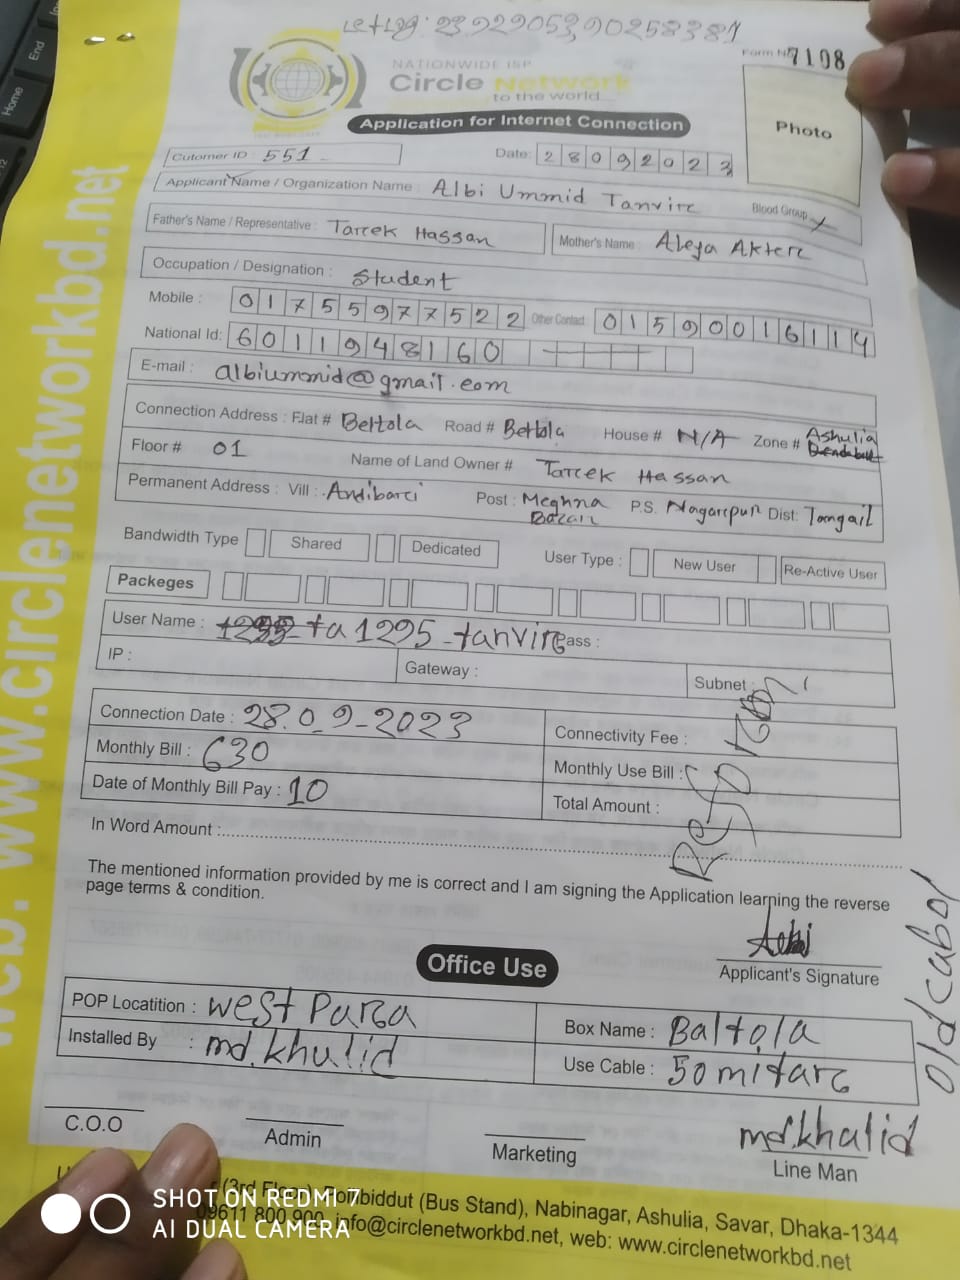 Let Log: 23.929053,90258381
Form No 7108
NATIONWIDE ISP
Circle Network
to the world
Application for Internet Connection
Photo
Cutomer ID : 551
Date: 28092023
Applicant Name / Organization Name : Albi Ummid Tanvir
Blood Group
Father's Name / Representative : Tareek Hassan
Mother's Name : Aleya Akter
Occupation / Designation : Student
Mobile : 01755977522 Other Contact 01590016114
National Id: 6011948160
E-mail : albiummid@gmail.com
Connection Address : Flat # Beltola Road # Beltola House # N/A Zone # Ashulia
Floor # 01 Name of Land Owner # Tareek Hassan
Permanent Address : Vill : Andibari Post : Meghna Bazar P.S. Nagarpur Dist: Tangail
Bandwidth Type Shared Dedicated User Type : New User Re-Active User
Packeges
User Name : ta1295_tanvir Pass :
IP : Gateway : Subnet :
Connection Date : 28.09-2023 Connectivity Fee :
Monthly Bill : 630 Monthly Use Bill :
Date of Monthly Bill Pay : 10 Total Amount :
In Word Amount :
The mentioned information provided by me is correct and I am signing the Application learning the reverse
page terms & condition.
Albi
Applicant's Signature
Office Use
POP Locatition : west Para Box Name : Baltola
Installed By : md.khulid Use Cable : 50 mitar
old cabol
C.O.O Admin Marketing
md.khalid
Line Man
(3rd Floor), Pollibiddut (Bus Stand), Nabinagar, Ashulia, Savar, Dhaka-1344
09611 800 900, info@circlenetworkbd.net, web: www.circlenetworkbd.net
web: www.circlenetworkbd.net
SHOT ON REDMI 7
AI DUAL CAMERA